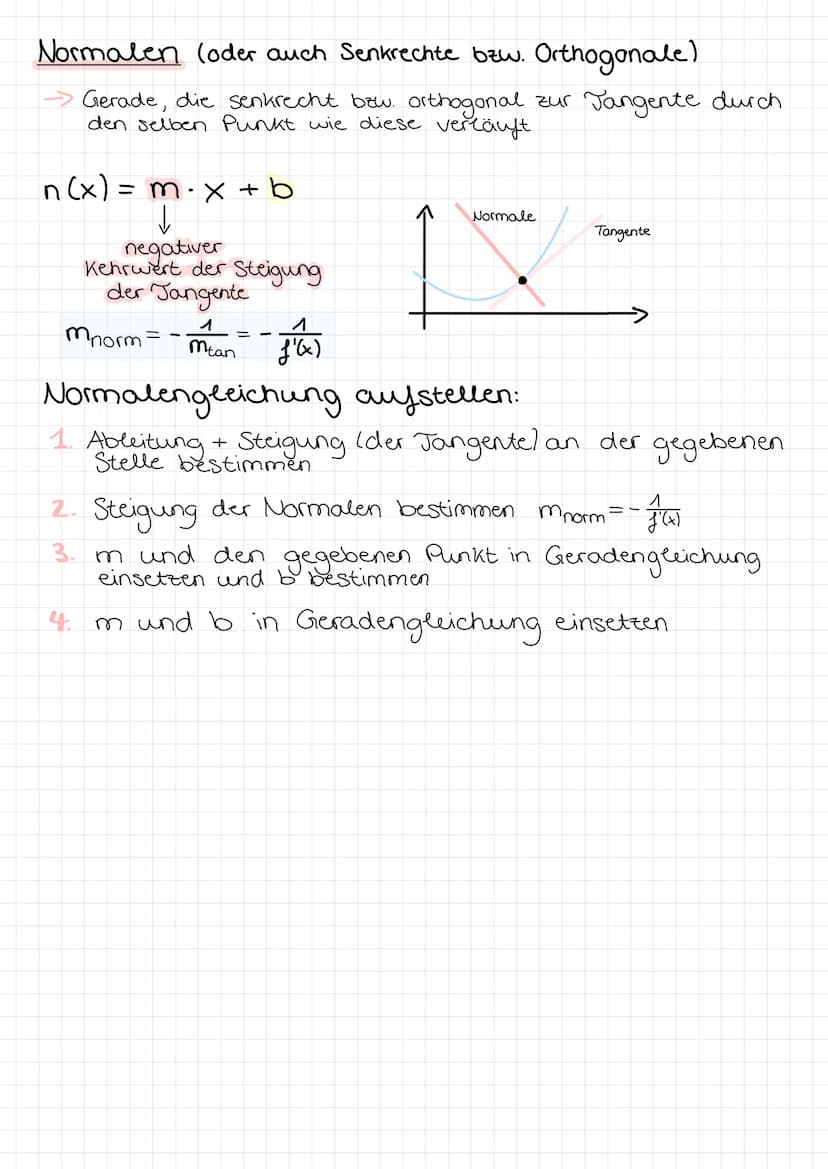 Normalen (oder auch Senkrechte bzw. Orthogonale)
→ Gerade, die senkrecht bzw. orthogonal zur Tangente durch
den selben Punkt wie diese verläuft
n(x) = m · x + b
↓
negativer
Kehrwert der Steigung
der Tangente
Normale
Tangente
mnorm = - 1/mtan = - 1/f'(x)
Normalengleichung aufstellen:
1. Ableitung + Steigung (der Tangente) an der gegebenen
Stelle bestimmen
2. Steigung der Normalen bestimmen mnorm = - 1/f'(x)
3. m und den gegebenen Punkt in Geradengleichung
einsetzen und b bestimmen
4. m und b in Geradengleichung einsetzen